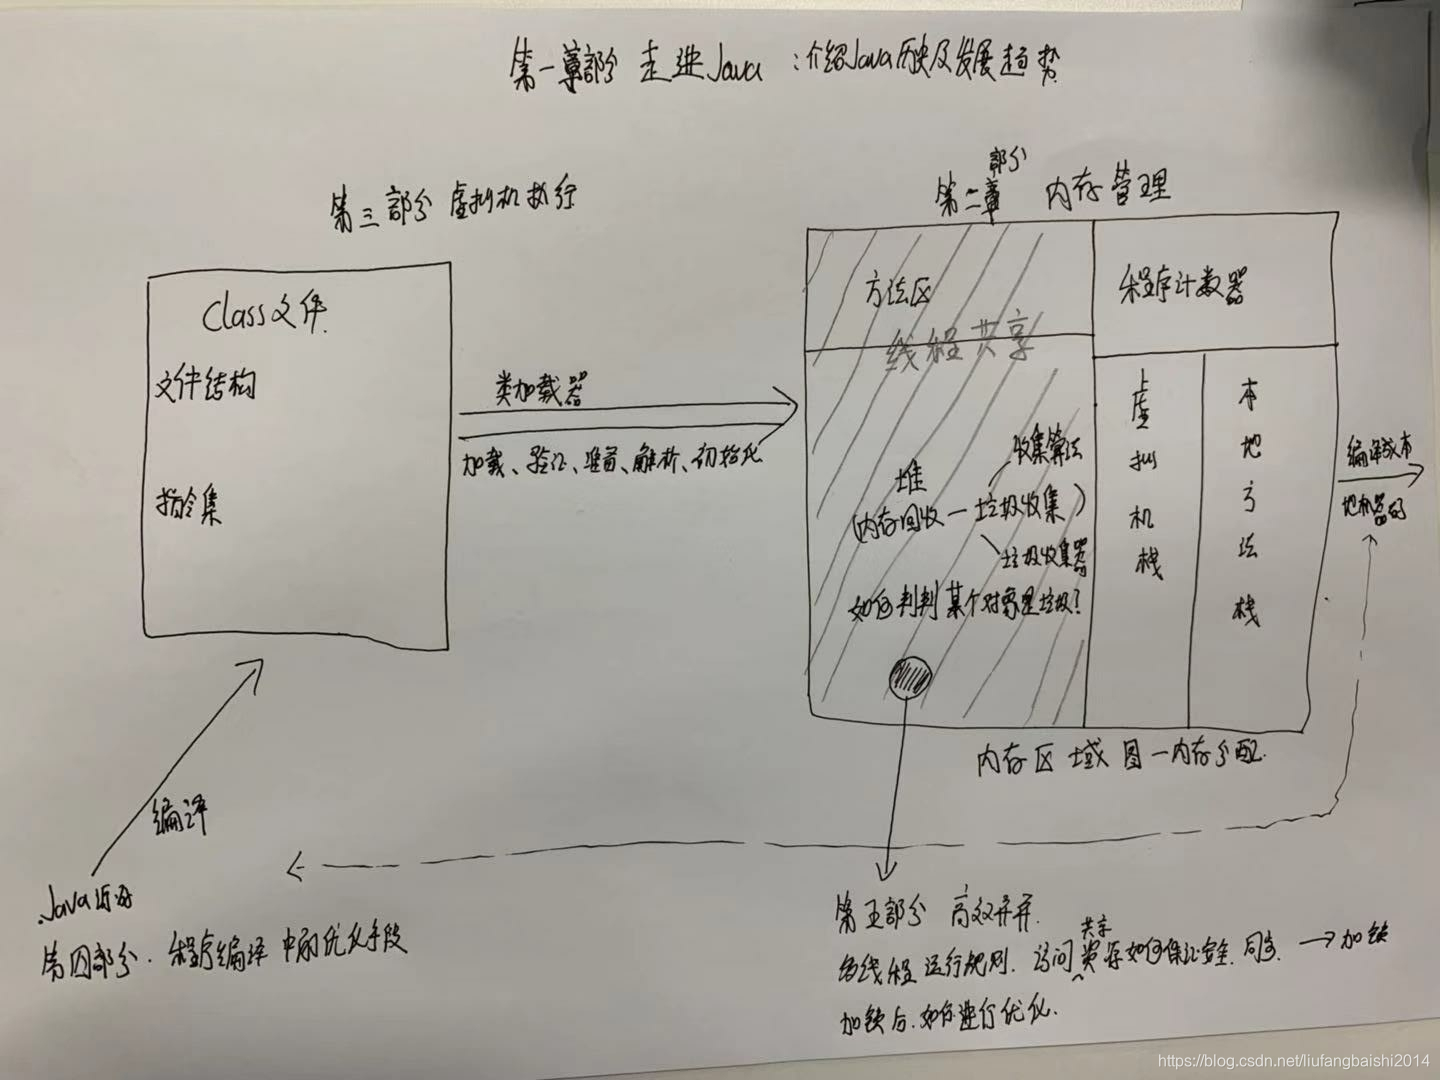 第一章部分 走进Java ：介绍Java历史及发展趋势
第三部分 虚拟机执行
部分
第二章 内存管理
Class文件.
文件结构
指令集
类加载器
加载、验证、准备、解析、初始化
方法区
线程共享
程序计数器
堆
收集算法
(内存回收一垃圾收集)
垃圾收集器
如何判判某个对象是垃圾?
虚拟机栈
本地方法栈
编译成本
地机器码
内存区域图一内存分配.
编译
.Java源码
第四部分. 程序编译中的优化手段
第五部分 高效并发.
共享
多线程运行规则. 访问资源如何保证安全.同步. →加锁
加锁后.如何进行优化.
https://blog.csdn.net/liufangbaishi2014